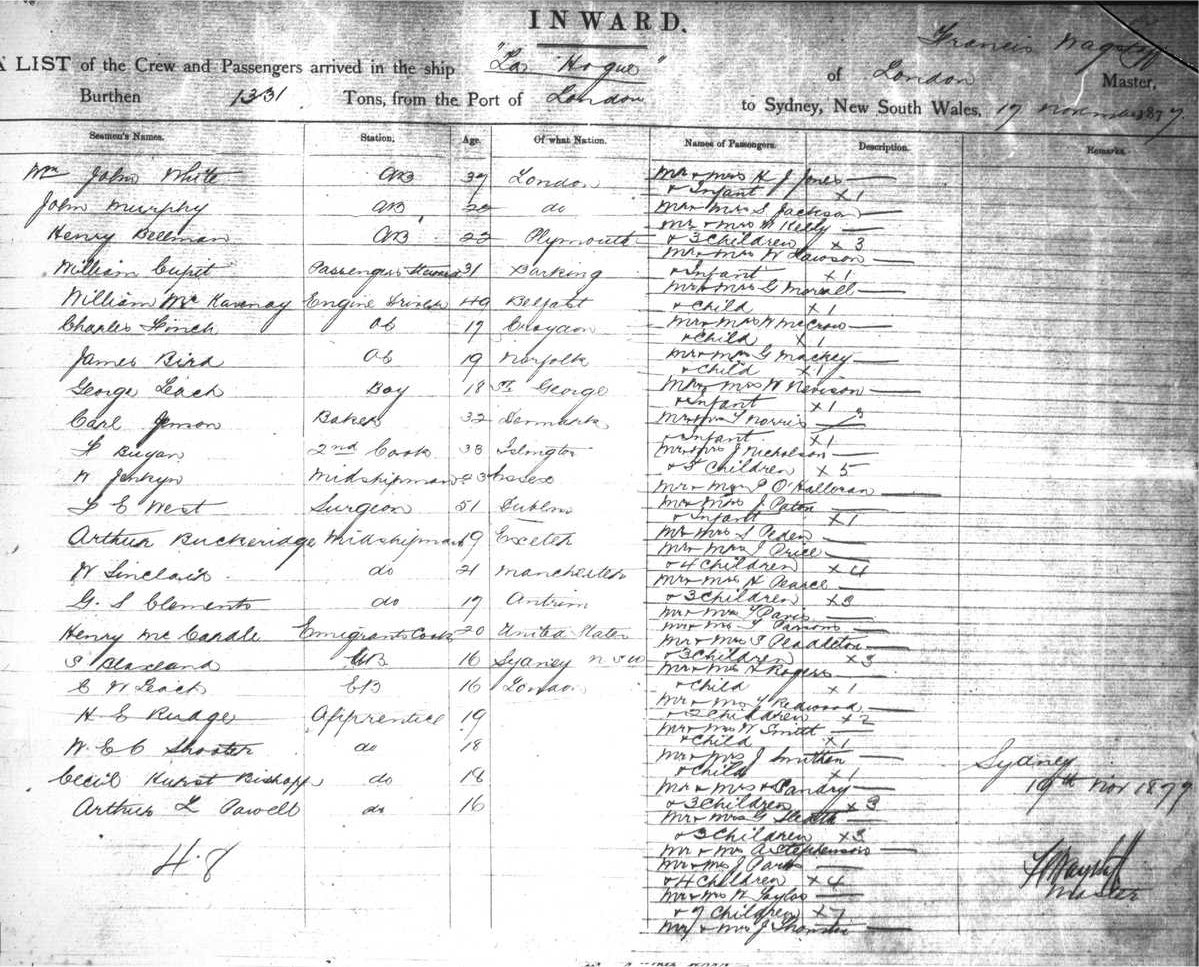 INWARD.
Francis Wagstaff
A LIST of the Crew and Passengers arrived in the ship "La Hogue" of London Master,
Burthen 1331 Tons, from the Port of London to Sydney, New South Wales, 17 November 1879
Seamen's Names. Station. Age. Of what Nation. Names of Passengers. Description. Remarks.
Wm John White AB 37 London
John Murphy AB do
Henry Bellman AB 22 Plymouth
William Cupit Passengers 31 Barking
William Mc Engine 49 Belfast
Charles Finch OS 17 Croydon
James Bird OS 19 Norfolk
George Leach Boy 18 St George
Carl Jenson Baker 32 Denmark
2nd Cook 33 Islington
W Jenkyn Midshipman 23 Essex
West Surgeon 51 Dublin
Arthur Buckeridge Midshipman 19 Exeter
W Sinclair do 21 Manchester
G. S Clements do 17 Antrim
Henry Mc Cardle Emigrants Cook 20 United States
S Blaxland 16 Sydney N S W
E W Leach 16 London
H E Rudge Apprentice 19
W. E C Shooter do 18
Cecil Hurst Bishopp do 18
Arthur L Powell do 16
48
Mr & Mrs H J Jones
& Infant x1
Mr & Mrs S Jackson
Mr & Mrs W Kelly
& 3 Children x 3
Mr & Mrs W Lawson
& Infant x1
Mr & Mrs G Morrall
& Child x1
Mr & Mrs W McCrow
& Child x1
Mr & Mrs G Mackey
& Child x1
Mr & Mrs W Nevison
& Infant x1
Mr & Mrs Norris
& Infant x1
Mr & Mrs J Nicholson
& 5 Children x 5
Mr & Mrs P O'Halloran
Mr & Mrs J Paton
& Infant x1
Mr & Mrs S Peden
Mr & Mrs J Price
& 4 Children x 4
Mr & Mrs H Pearce
& 3 Children x3
Mr & Mrs Paris
Mr & Mrs Parsons
Mr & Mrs S Pendleton
& 3 Children x3
Mr & Mrs H Rogers
& Child x1
Mr & Mrs Redwood
& 2 Children x2
Mr & Mrs W Smith
& Child x1
Mr & Mrs J
& Child x1
Mr & Mrs
& 3 Children x3
Mr & Mrs G
& 3 Children x3
Mr & Mrs A Stephenson
Mr & Mrs J Park
& 4 Children x 4
Mr & Mrs Taylor
& 7 Children x7
Mr & Mrs J
Sydney
19th Nov 1879
F Wagstaff
Master